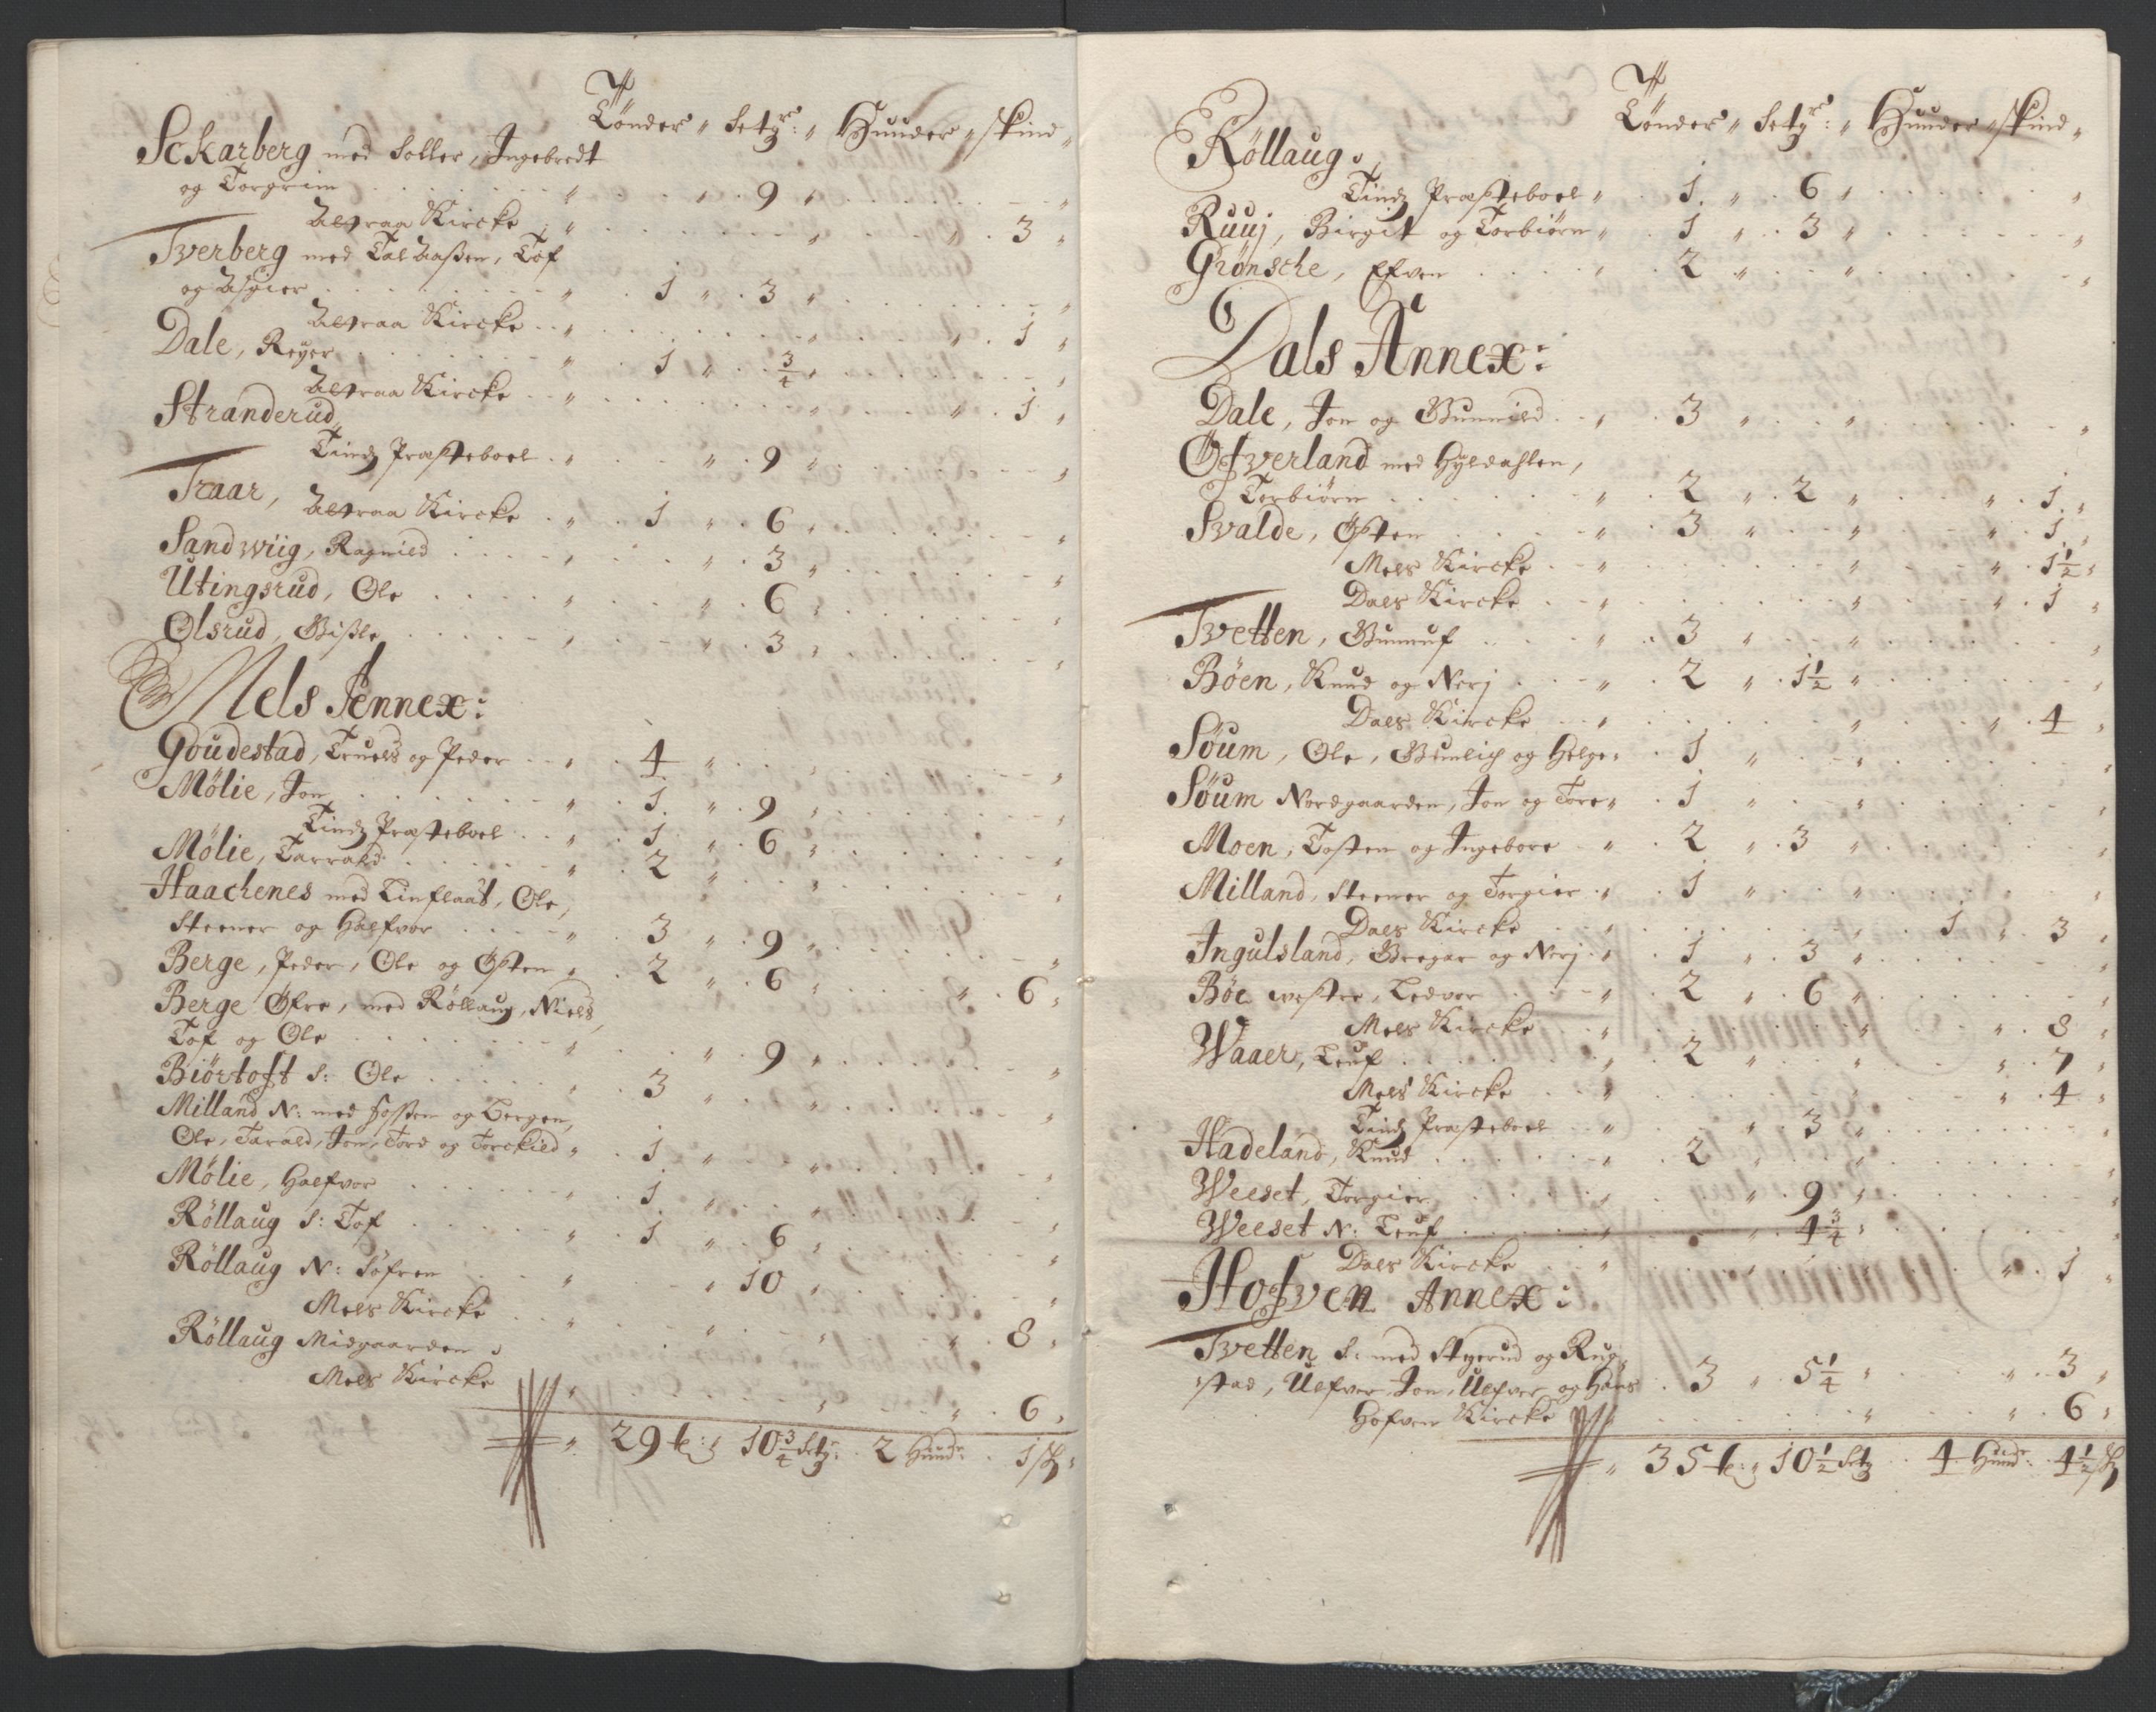 Tönder „ Setgr: „ Hunder „ skind „
Sckarberg med Soller, Ingebredt
og Torgrim „ „ 9 „ „
Atraa Kircke „ „ „ 3 „
Tverberg med Talaaßen, Tof
og Asgier „ 1 „ 3 „ „
Atraa Kircke „ „ „ 1 „
Dale, Reyer „ 1 „ 3/4 „ „
Atraa Kircke „ „ „ 1 „
Stranderud,
Tindz Præsteboel „ „ 9 „ „
Traar, Atraa Kircke „ 1 „ 6 „ „
Sandwiig, Ragnild „ „ 3 „ „
Utingsrud, Ole „ „ 6 „ „
Olsrud, Gißle „ „ 3 „ „
Mels Annex:
Goudestad, Truels og Peder „ 4 „ „ „
Mölie, Jon „ 1 „ 9 „ „
Tindz Præsteboel „ 1 „ 6 „ „
Mölie, Tarrald „ 2 „ „ „
Haachenes med Linflaat, Ole,
Steener og Halfvor „ 3 „ 9 „ „
Berge, Peder, Ole og Østen „ 2 „ 6 „ „ 6 „
Berge Øfre, med Röllaug, Niels,
Tof og Ole „ „ 9 „ „
Biörtoft S: Ole „ 3 „ „ „
Milland N: med Fosten og Bergen,
Ole, Tarald, Jon, Tord og Torckild „ 1 „ „ „
Mölie, Halfvor „ 1 „ „ „
Röllaug S: Tof „ 1 „ 6 „ „
Röllaug N: Söfren „ „ 10 „ „
Mels Kircke „ „ „ „ 8 „
Röllaug Midgaarden,
Mels Kircke „ „ „ 6 „
„ 29 t: „ 10 3/4 Setg: 2 Hund: 1 sk „
Tönder „ Setgr: „ Hunder „ skind „
Röllaug,
Tindz Præsteboel „ 1 „ 6 „ „
Ruuj, Birgit og Torbiörn „ 1 „ 3 „ „
Grönsche, Efven „ 2 „ „ „
Dals Annex:
Dale, Jon og Gunnild „ 3 „ „ „
Øfverland med Hyldahlen,
Torbiörn „ 2 „ 2 „ „ 1 „
Svalde, Østen „ 3 „ „ „ 1 „
Mels Kircke „ „ „ 1 1/2 „
Dals Kircke „ „ „ 1 „
Tvetten, Gunnuf „ 3 „ „ „
Böen, Knud og Nerj „ 2 „ 1 1/2 „ „
Dals Kircke „ „ „ 4 „
Söum, Ole, Gunlich og Helge „ 1 „ „ „
Söum Nordgaarden, Jon og Tore „ 1 „ „ „
Moen, Tosten og Ingebore „ 2 „ 3 „ „
Milland, Steener og Torgier „ 1 „ „ „
Dals Kircke „ „ 1 „ 3 „
Ingulsland, Gregar og Nerj „ 1 „ 3 „ „
Böe westre, Ledvor „ 2 „ 6 „ „
Mels Kircke „ „ „ 8 „
Waaer, Leuf „ 2 „ „ „ 7 „
Mels Kircke „ „ „ 4 „
Tindz Præsteboel „ „ 3 „ „
Hadeland, Knud „ 2 „ „ „
Weeset, Torgier „ „ 9 „ „
Weeset N: Leuf „ „ 4 3/4 „ „
Dals Kircke „ „ „ 1 „
Hofven Annex:
Tvetten S: med Styerud og Rug,
stad, Ulfver, Jon, Ulfver og Hans 3 „ 5 1/4 „ „ 3 „
Hofven Kircke „ „ „ 6 „
„ 35 t: „ 10 1/2 Setg 4 Hund: 4 1/2 sk